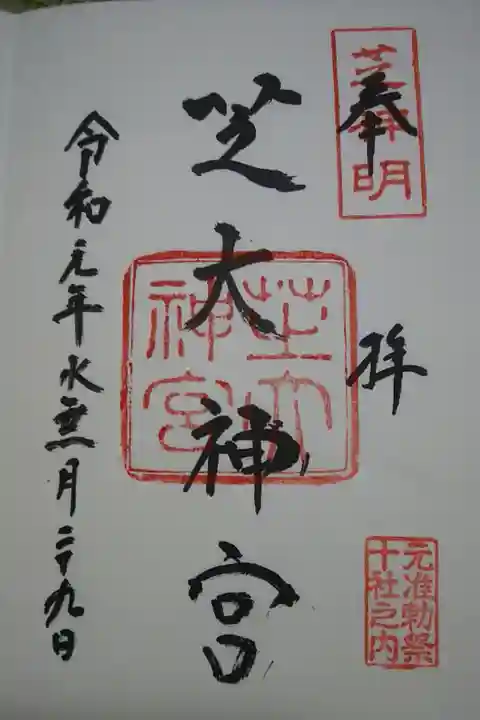 奉拝
芝神明
元准勅祭
十社之内
芝大神宮
芝大
神宮
令和元年水無月二十九日